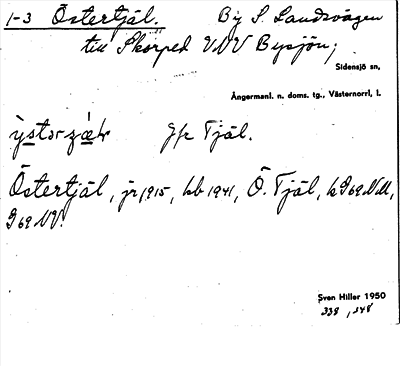 1-3 Östertjäl. By S. Landsvägen
till Skorped VNV Bysjön;
Sidensjö sn,
Ångermanl. n. doms. tg., Västernorrl. l.
Jfr Tjäl.
Östertjäl, jr 1915, kb 1941, Ö. Tjäl, k G69NM,
G69NV.
Sven Hiller 1950
338, 348